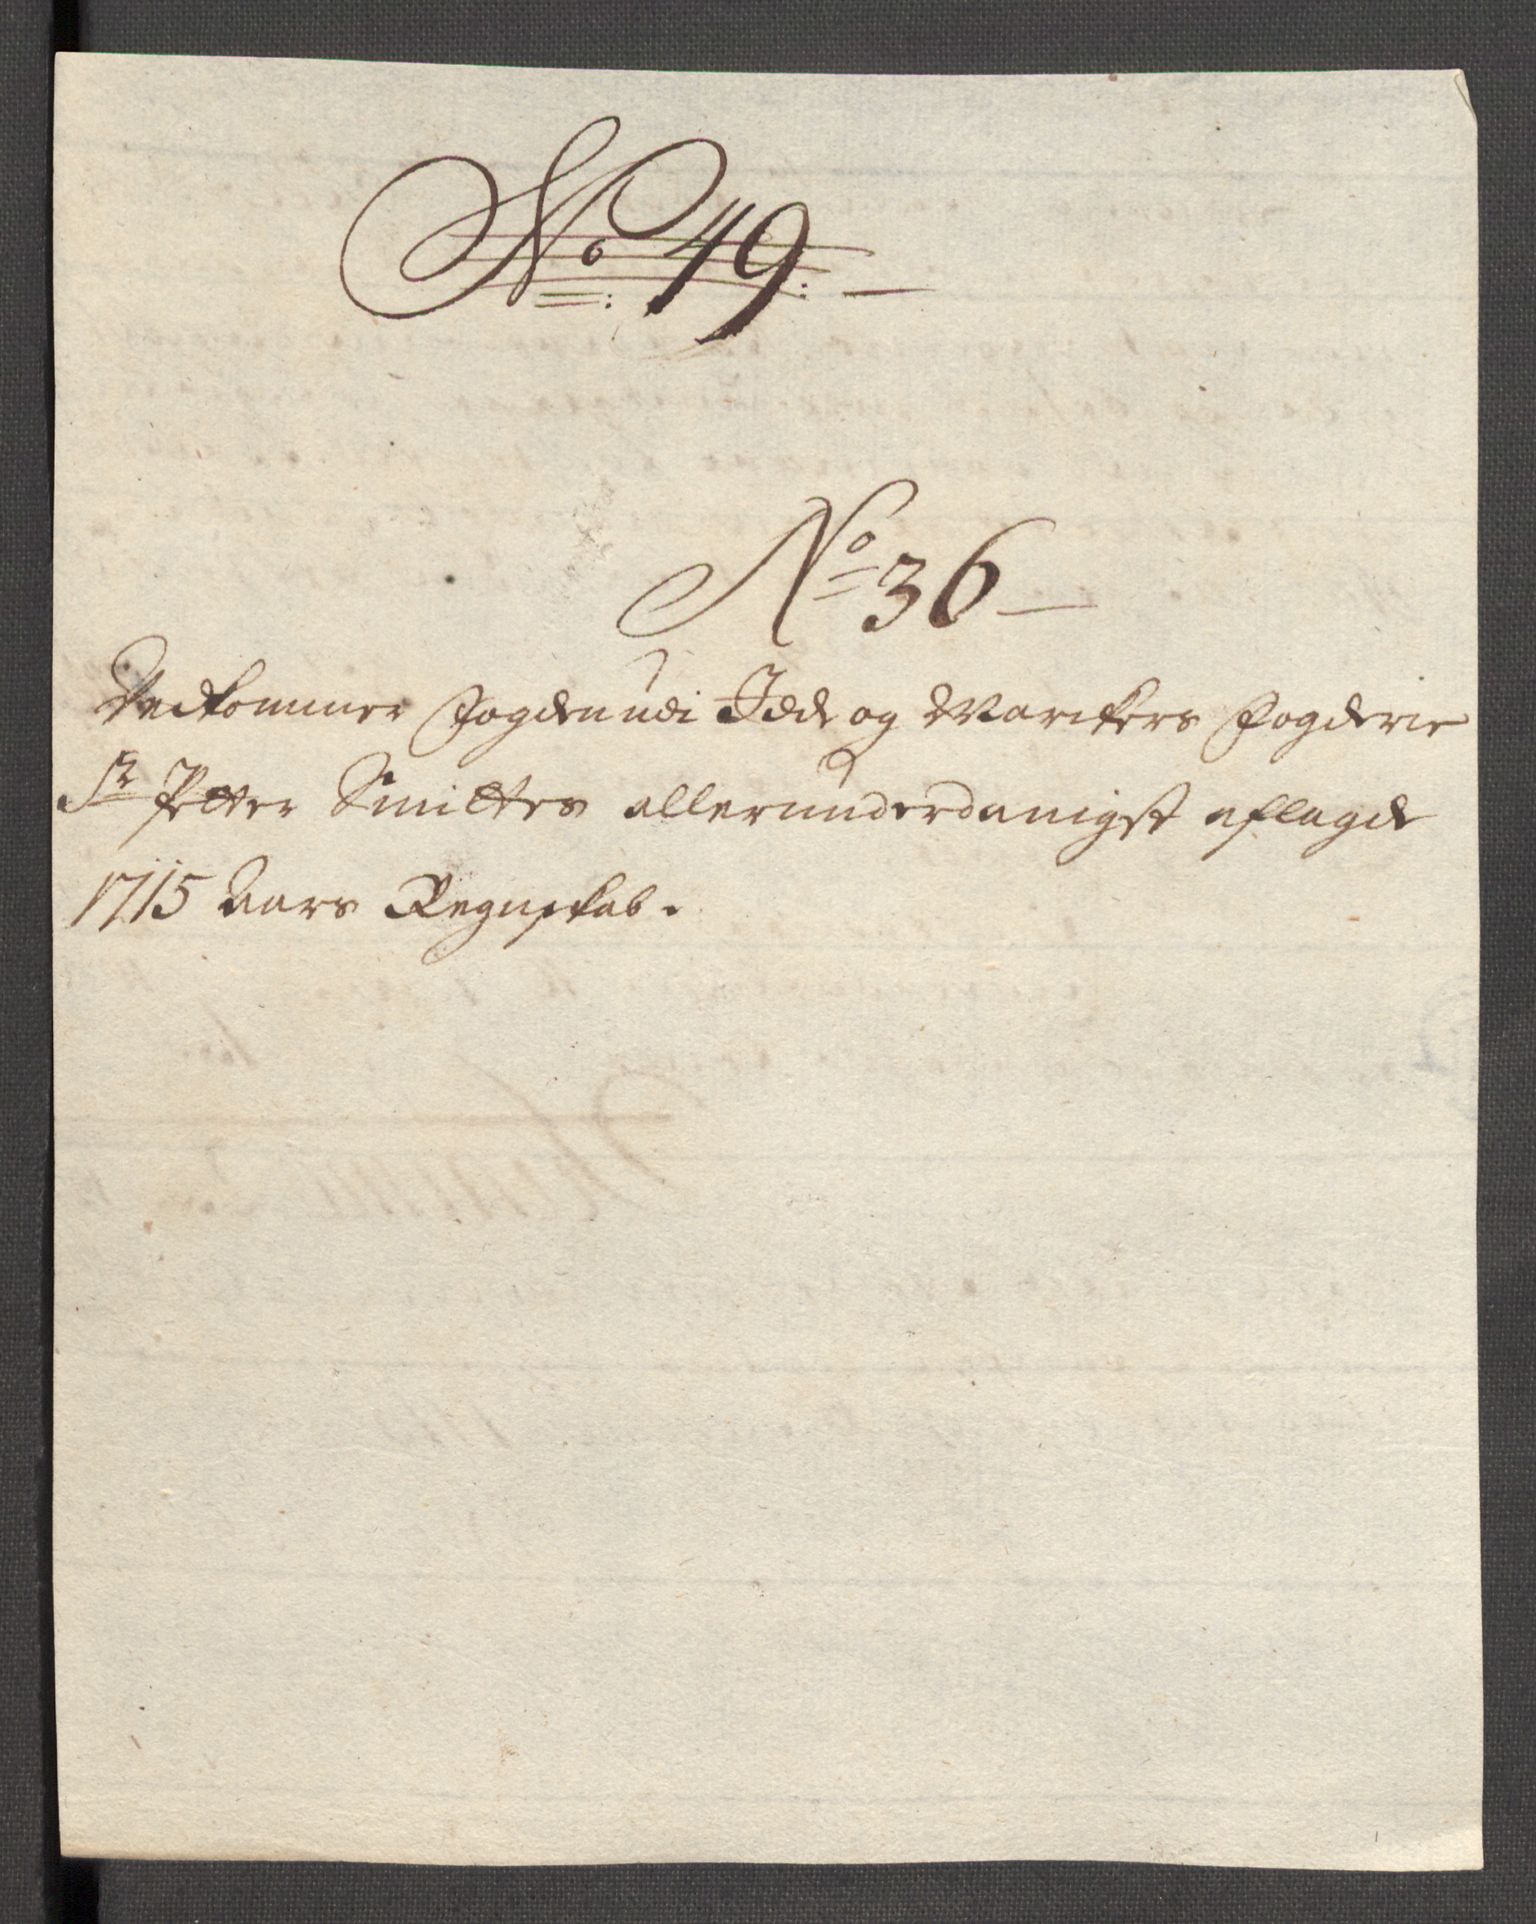 No: 49: —
No 36 —
Vedkommer Fogden udi Idde og Marckers Fogderie
Sr Petter Smiltes allerunderdanigst aflagde
1715 Aars Regnskab.